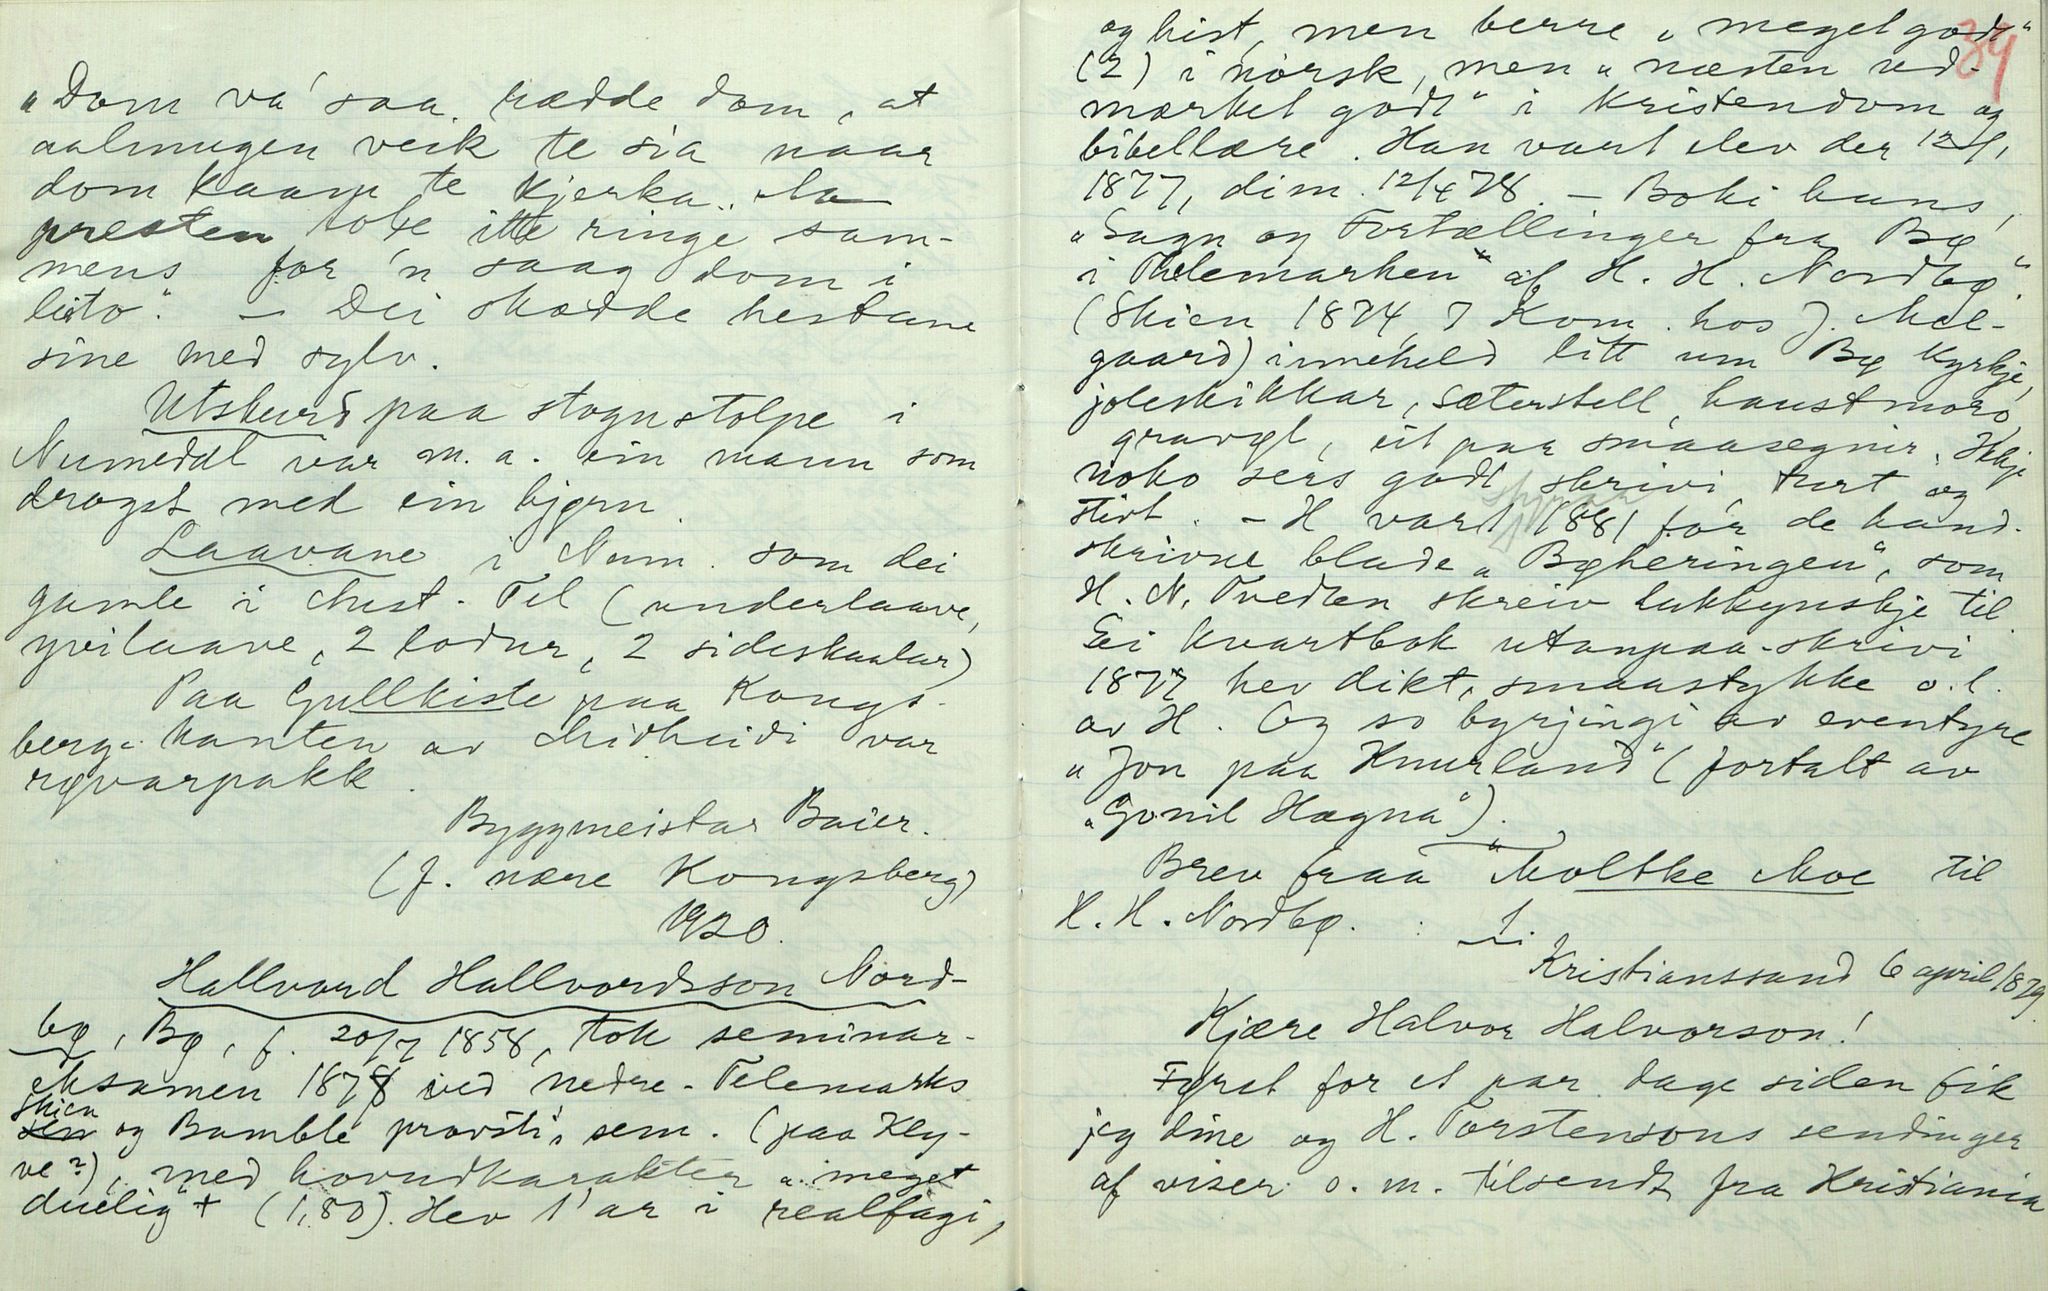 „Dom va' saa rædde dom, at
aalmugen veik te sia naar
dom kaam te kjerka.
presten tole itte ringe sam-
mens for 'n saag dom i
leito". – Dei skodde hestane
sine med sylv.
Utskurd paa stogustolpe i
Numedal var m. a. ein mann som
drogst med ein bjørn.
Laavane i Num. som dei
gamle i Aust-Tel (underlaave,
yvilaave, 2 lodur, 2 sideskaalar)
Paa Gullkiste paa Kongs-
berg-kanten av Meidheidi var
røvarpakk.
Byggmeistar Baier.
(f. nære Kongsberg)
1920.
Hallvard Hallvordsson Nord-
bø, Bø, f. 20/7 1858, tok seminar-
eksamen 1878 ved nedre-Telemarks
skien og Bamble provsti's sem. (paa Kly-
ve?), med hovudkarakter „meget
duelig" + (1,80). Hev 1'ar i realfagi,
39
og hist, men berre „meget godt"
(2) i norsk, men „næsten ud-
mærket godt" i Kristendom og
bibellære. Han vart elev der
1877, dim. 12/4 78. – Boki hans,
„Sagn og Fortællinger fra Bø
i Thelemarken" af H. H. Nordbø".
(Skien 1874, I Kom. hos J. Mel-
gaard) inneheld litt um Bø kyrkje,
joleskikkar, sæterstell, haustmoro,
gravøl, eit par smaasegner. Ikkje
noko sers godt skrivi, turt og
stivt. – H vart 1881 for de hand-
skrivne blade „Bøheringen", som
H. N. Tvedten skreiv lukkynskje til.
Ei kvartbok utanpaa-skrivi
1877 hev dikt, smaastykke o. l.
av H. Og so byrjingi av eventyre
„Jon paa Knurland" (fortalt av
„Gonil Hægna").
Brev fraa Moltke Moe til
H. H. Nordbø. :
1.
Kristianssand 6 april 1879.
Kjære Halvor Halvorson!
Fyrst for et par dage siden fik
jeg dine og H. Torstensons sendinger
af viser o. m. tilsendt fra Kristiania